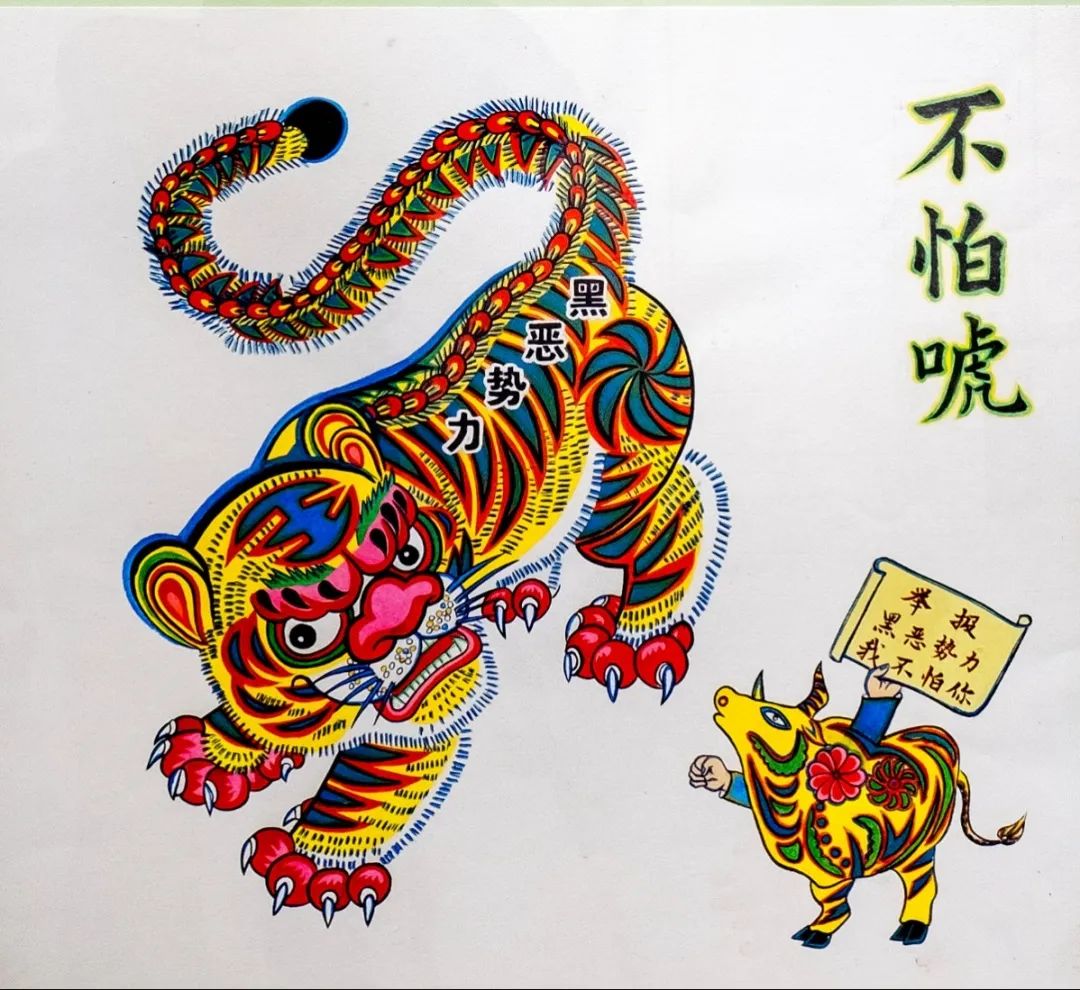 不怕唬
黑恶势力
举报
黑恶势力
我不怕你